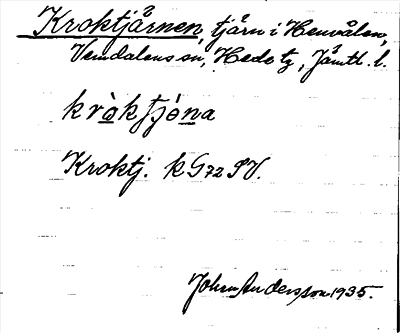 Kroktjårnen, tjärn i Henvålen,
Vemdalens sn, Hede tg, Jämtl. l.
kròktjó̱na
Kroktj. k G72 SV.
John Andersson 1935.